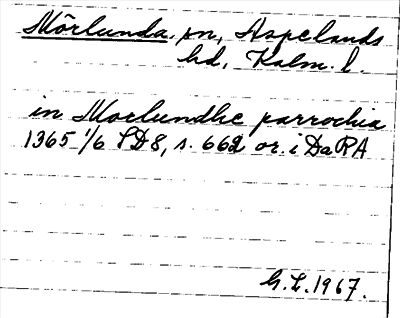 Mörlunda sn, Aspelands
hd, Kalm. l.
in Morlundhe parrochia
1365 1/6 SD 8, s. 662 or. i DaRA
G.L. 1967.